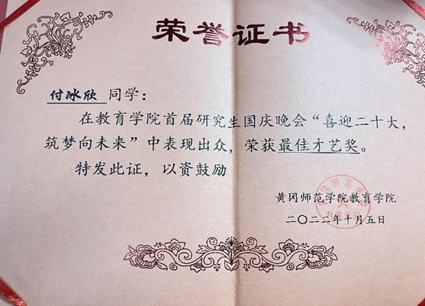 荣誉证书
付冰欣 同学：
在教育学院首届研究生国庆晚会“喜迎二十大，
筑梦向未来”中表现出众，荣获最佳才艺奖。
特发此证，以资鼓励
黄冈师范学院教育学院
二〇二二年十月五日